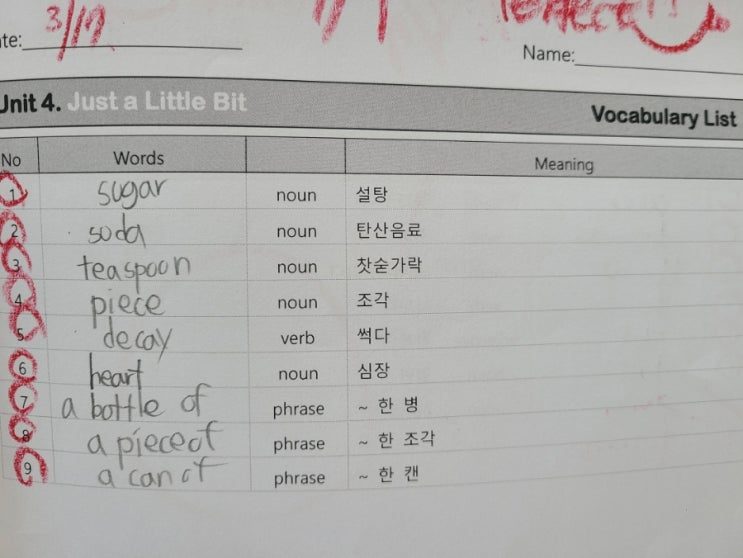 te: 3/17
Name:
Unit 4. Just a Little Bit
Vocabulary List
No Words Meaning
1 sugar noun 설탕
2 soda noun 탄산음료
3 teaspoon noun 찻숟가락
4 piece noun 조각
5 decay verb 썩다
6 heart noun 심장
7 a bottle of phrase ~ 한 병
8 a piece of phrase ~ 한 조각
9 a can of phrase ~ 한 캔